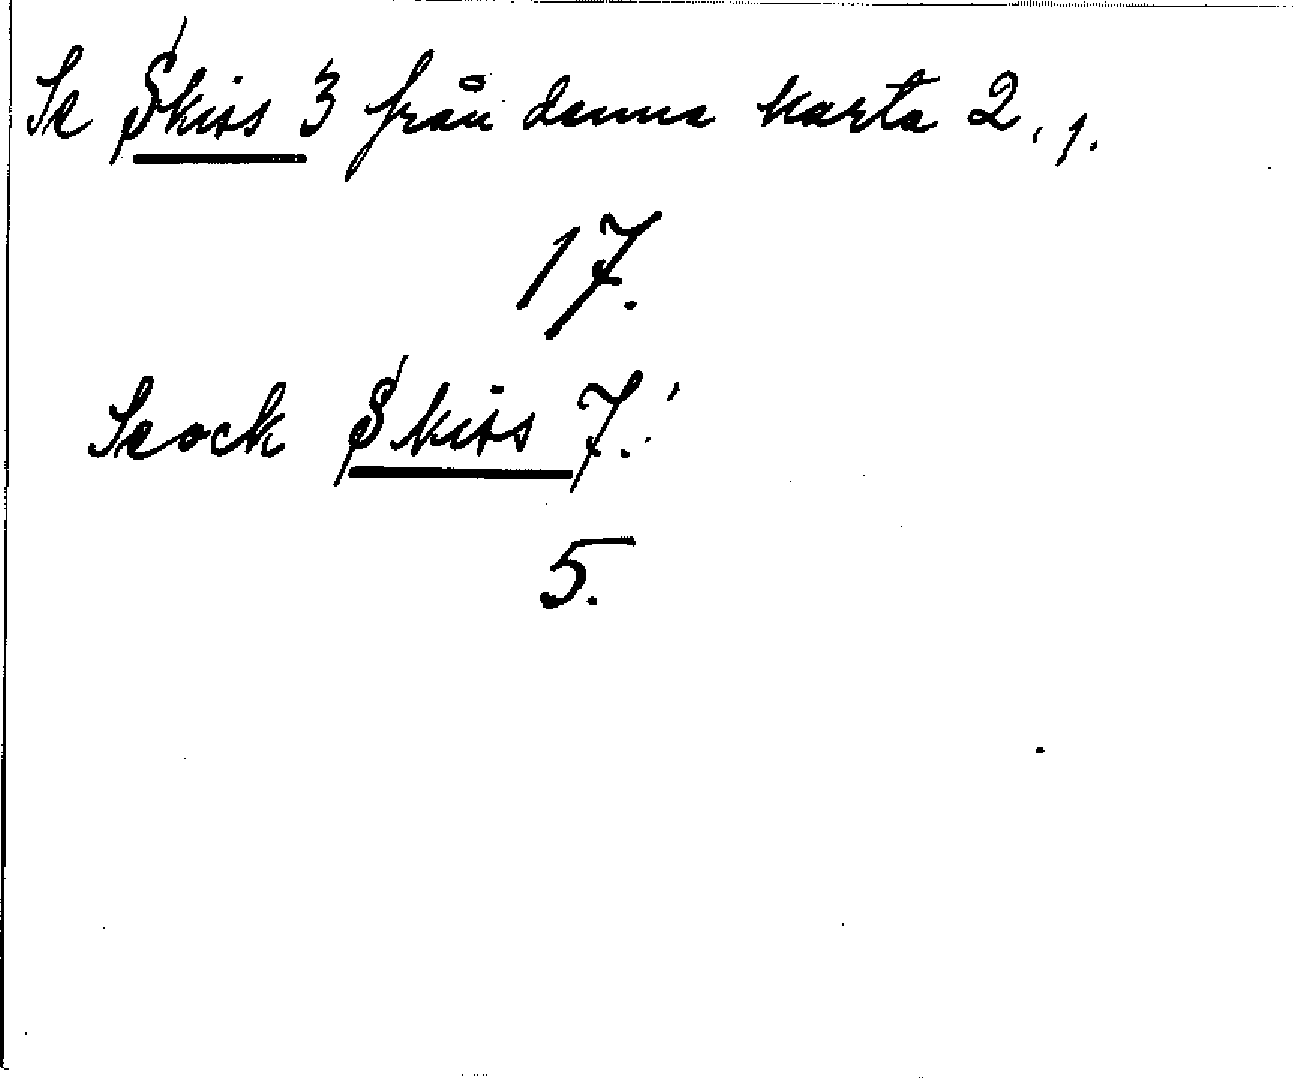 Se Skiss 3 från denna karta 2, 1.
17.
Se ock Skiss 7.
5.